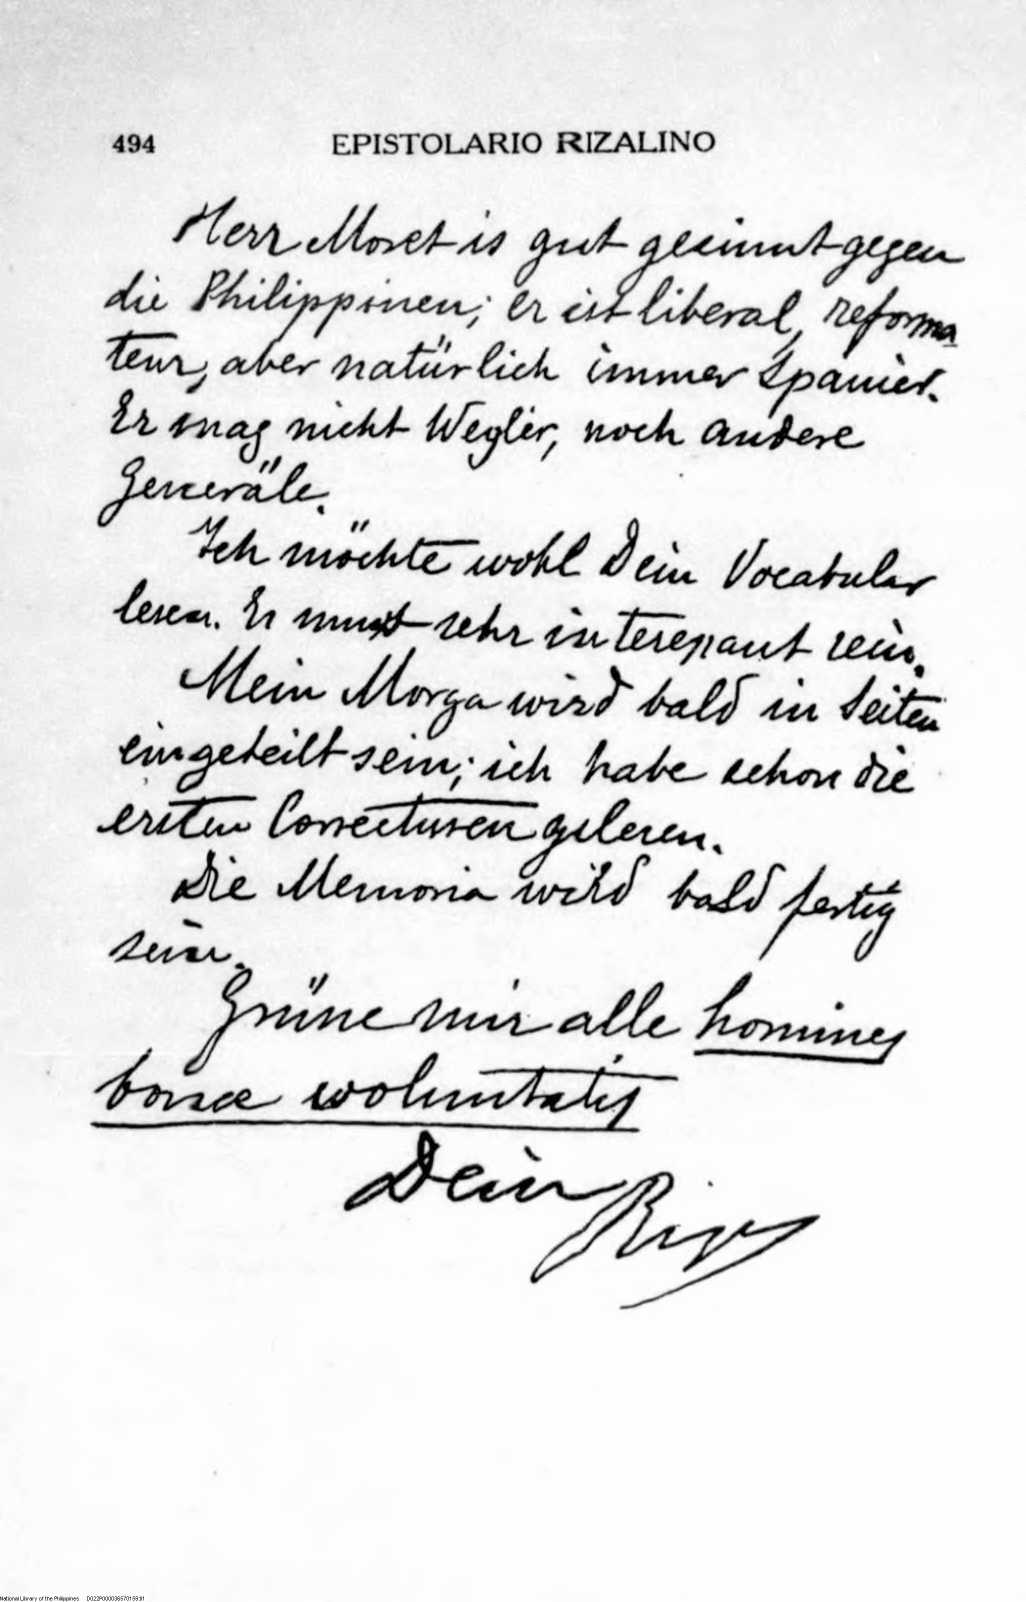 494 EPISTOLARIO RIZALINO
Herr Moret is gut gesinnt gegen
die Philippinen; er ist liberal, reforma
teur, aber natürlich immer Spanier.
Er mag nicht Weyler, noch andere
Generäle.
Ich möchte wohl Dein Vocabular
lesen. Er must sehr interessant sein.
Mein Morga wird bald in Seiten
eingeteilt sein; ich habe schon die
ersten Correcturen gelesen.
Die Memoria wird bald fertig
sein.
Grüne mir alle homines
bonae woluntatis
Dein
National Library of the Philippines